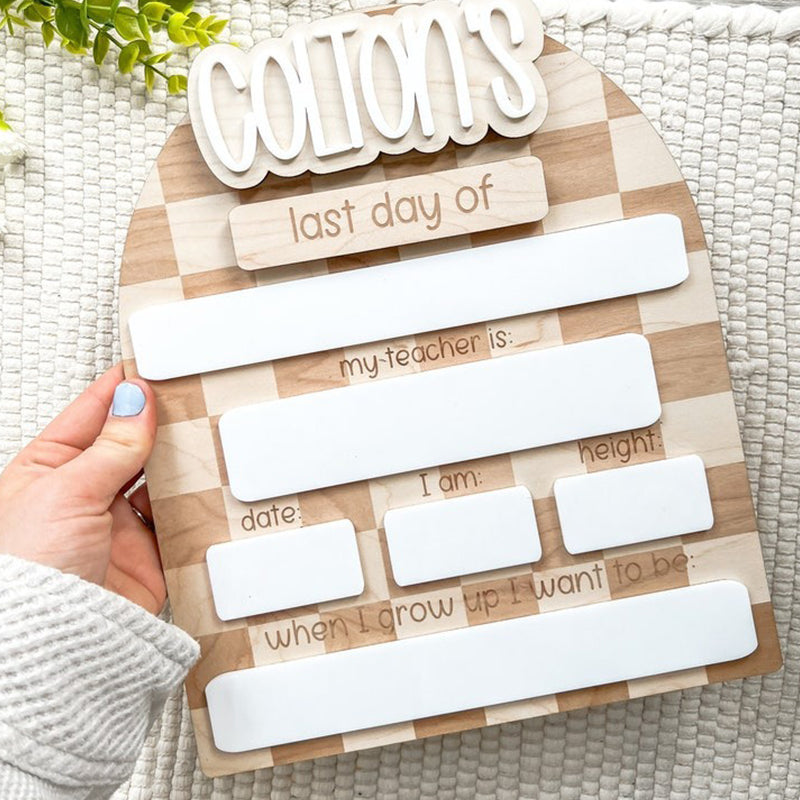 COLTON'S
last day of
my teacher is:
date: I am: height:
when I grow up I want to be: